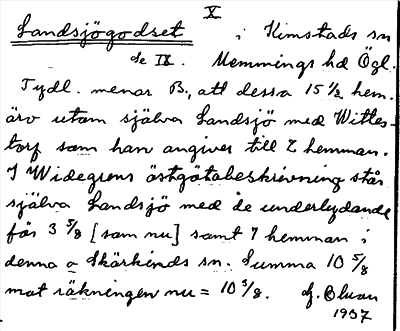 X
Landsjögodset i Kimstads sn
se IX. Memmings hd Ögl.
Tydl. menar B., att dessa 15 1/2 hem.
äro utom själva Landsjö med Wittes-
torp som han angiver till 7 hemman.
I Widegrens östgötabeskrivning står
själva Landsjö med de underlydande
för 3 5/8 [som nu] samt 7 hemman i
denna o Skärkinds sn. Summa 10 5/8
mot räkningen nu = 10 3/8. 
1937